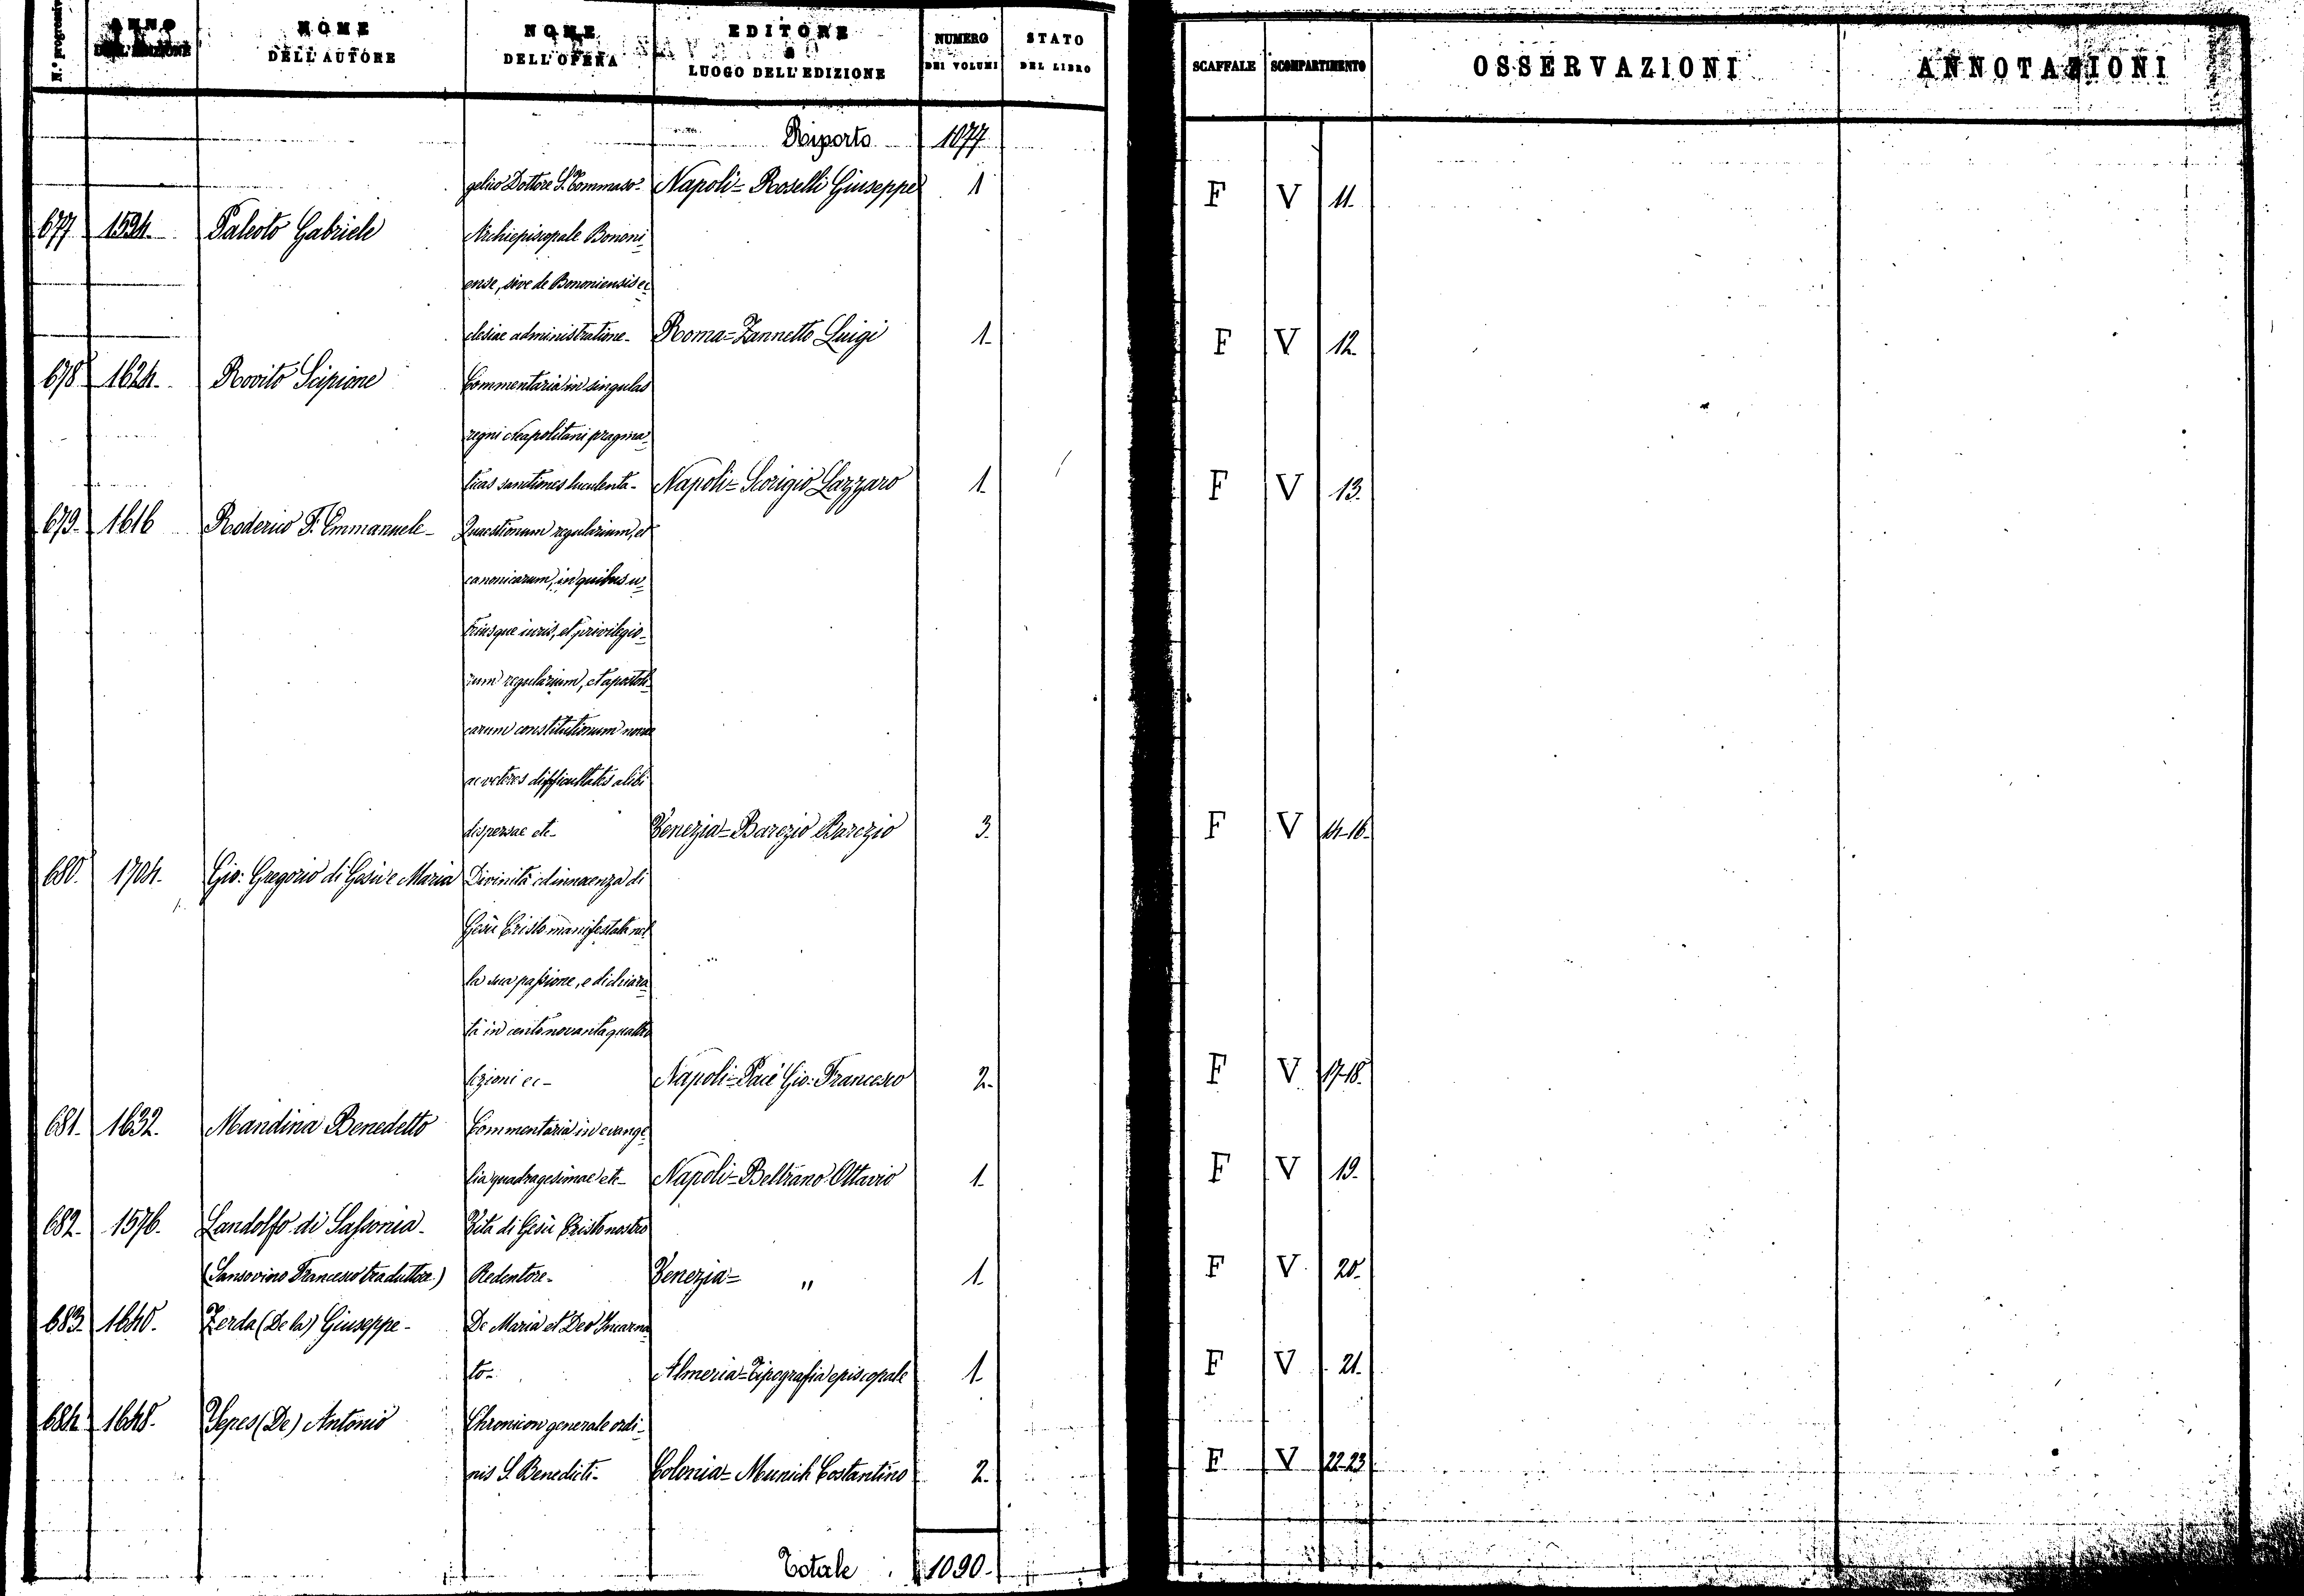 N.º progressivo ANNO DELL'EDIZIONE NOME DELL'AUTORE NOME DELL'OPERA EDITORE e LUOGO DELL'EDIZIONE NUMERO DEI VOLUMI STATO DEL LIBRO SCAFFALE SCOMPARTIMENTO OSSERVAZIONI ANNOTAZIONI
Riporto 1077
gelico Dottore S. Tommaso- Napoli= Roselli Giuseppe 1 F V 11.
677 1594. Paleoto Gabriele Archiepiscopale Bononi-
ense, sive de Bononiensis ec-
clesiae administratione- Roma= Zannetto Luigi 1. F V 12.
678 1624. Rovito Scipione Commentaria in singulas
regni Neapolitani pragma-
ticas sanctiones luculenta- Napoli= Scorigio Lazzaro 1. F V 13.
679. 1616 Roderico F. Emmanuele- Quaestionum regularium, et
canonicarum, in quibus u-
triusque iuris, et privilegio-
rum regularium, et apostoli-
carum constitutionum novae
ac veteres difficultates alibi
dispersae etc- Venezia= Barezio Barezio 3. F V 14-16.
680. 1704. Gio: Gregorio di Gesù e Maria Divinità ed innocenza di
Gesù Cristo manifestate nel-
la sua passione, e dichiara-
ta in cento novanta quattro
lezioni ec- Napoli= Pace Gio: Francesco 2. F V 17-18.
681. 1632. Mandina Benedetto Commentaria in evange-
lia quadragesimae etc- Napoli= Beltrano Ottavio 1. F V 19.
682. 1576. Landolfo di Sassonia- Vita di Gesù Cristo nostro
(Sansovino Francesco traduttore.) Redentore- Venezia= " 1. F V 20.
683. 1640. Zerda (De la) Giuseppe- De Maria et Deo Incarna-
to- Almeria= Tipografia episcopale 1. F V 21.
684. 1648. Yepes (De) Antonio Chronicon generale ordi-
nis S. Benedicti- Colonia= Munich Costantino 2. F V 22-23
Totale 1090.